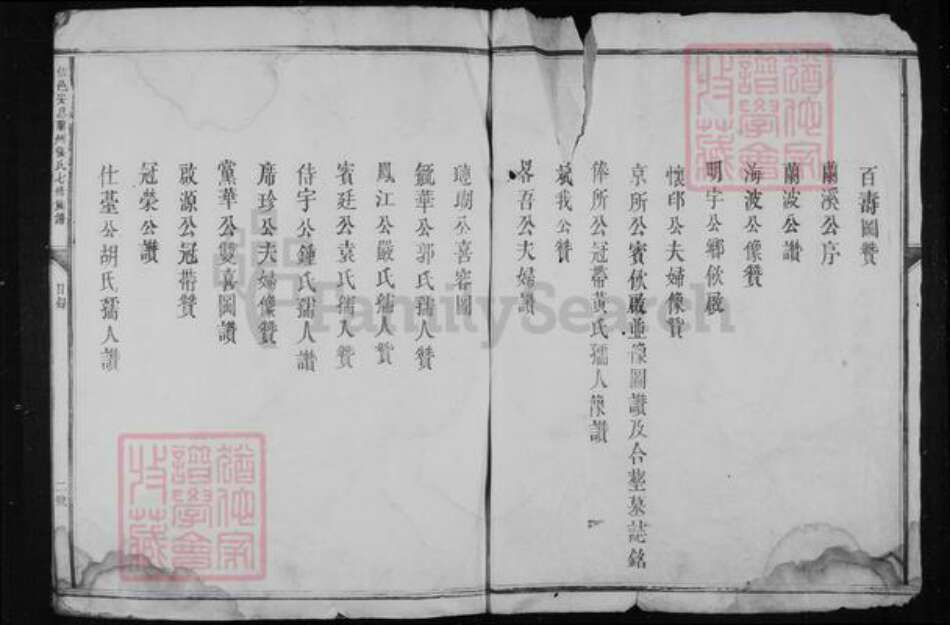 百壽圖贊
蘭溪公序
蘭波公讚
海波公像贊
明宇公鄉飲啟
懷邱公夫婦像贊
京所公賓飲啟並像圖讚及合塋墓誌銘
俸所公冠帶黃氏孺人像讚
我公贊
吾公夫婦讚
公喜容圖
毓華公郭氏孺人贊
鳳江公嚴氏孺人贊
賓廷公袁氏孺人贊
侍宇公鍾氏孺人讚
席珍公夫婦像贊
黨華公雙喜圖讚
啟源公冠帶贊
冠榮公讚
仕臺公胡氏孺人讚
目錄
二號
FamilySearch